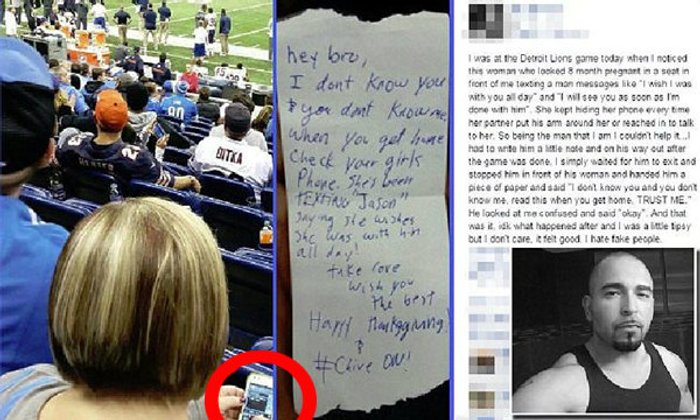 HESTER
23
DITKA
80
hey bro,
I dont know you
& you dont know me
when you get home
Check your girls
Phone. She's been
TEXTING "Jason"
saying she wishes
she was with him
all day!
take care
wish you
the best
Happy Thanksgiving!
&
#Chive ON!
I was at the Detroit Lions game today when I noticed
this woman who looked 8 month pregnant in a seat in
front of me texting a man messages like "I wish I was
with you all day" and "I will see you as soon as I'm
done with him". She kept hiding her phone every time
her partner put his arm around her or reached in to talk
to her. So being the man that I am I couldn't help it...I
had to write him a little note and on his way out after
the game was done, I simply waited for him to exit and
stopped him in front of his woman and handed him a
piece of paper and said "I don't know you and you don't
know me, read this when you get home, TRUST ME."
He looked at me confused and said "okay". And that
was it, idk what happened after and I was a little tipsy
but I don't care, it felt good. I hate fake people.